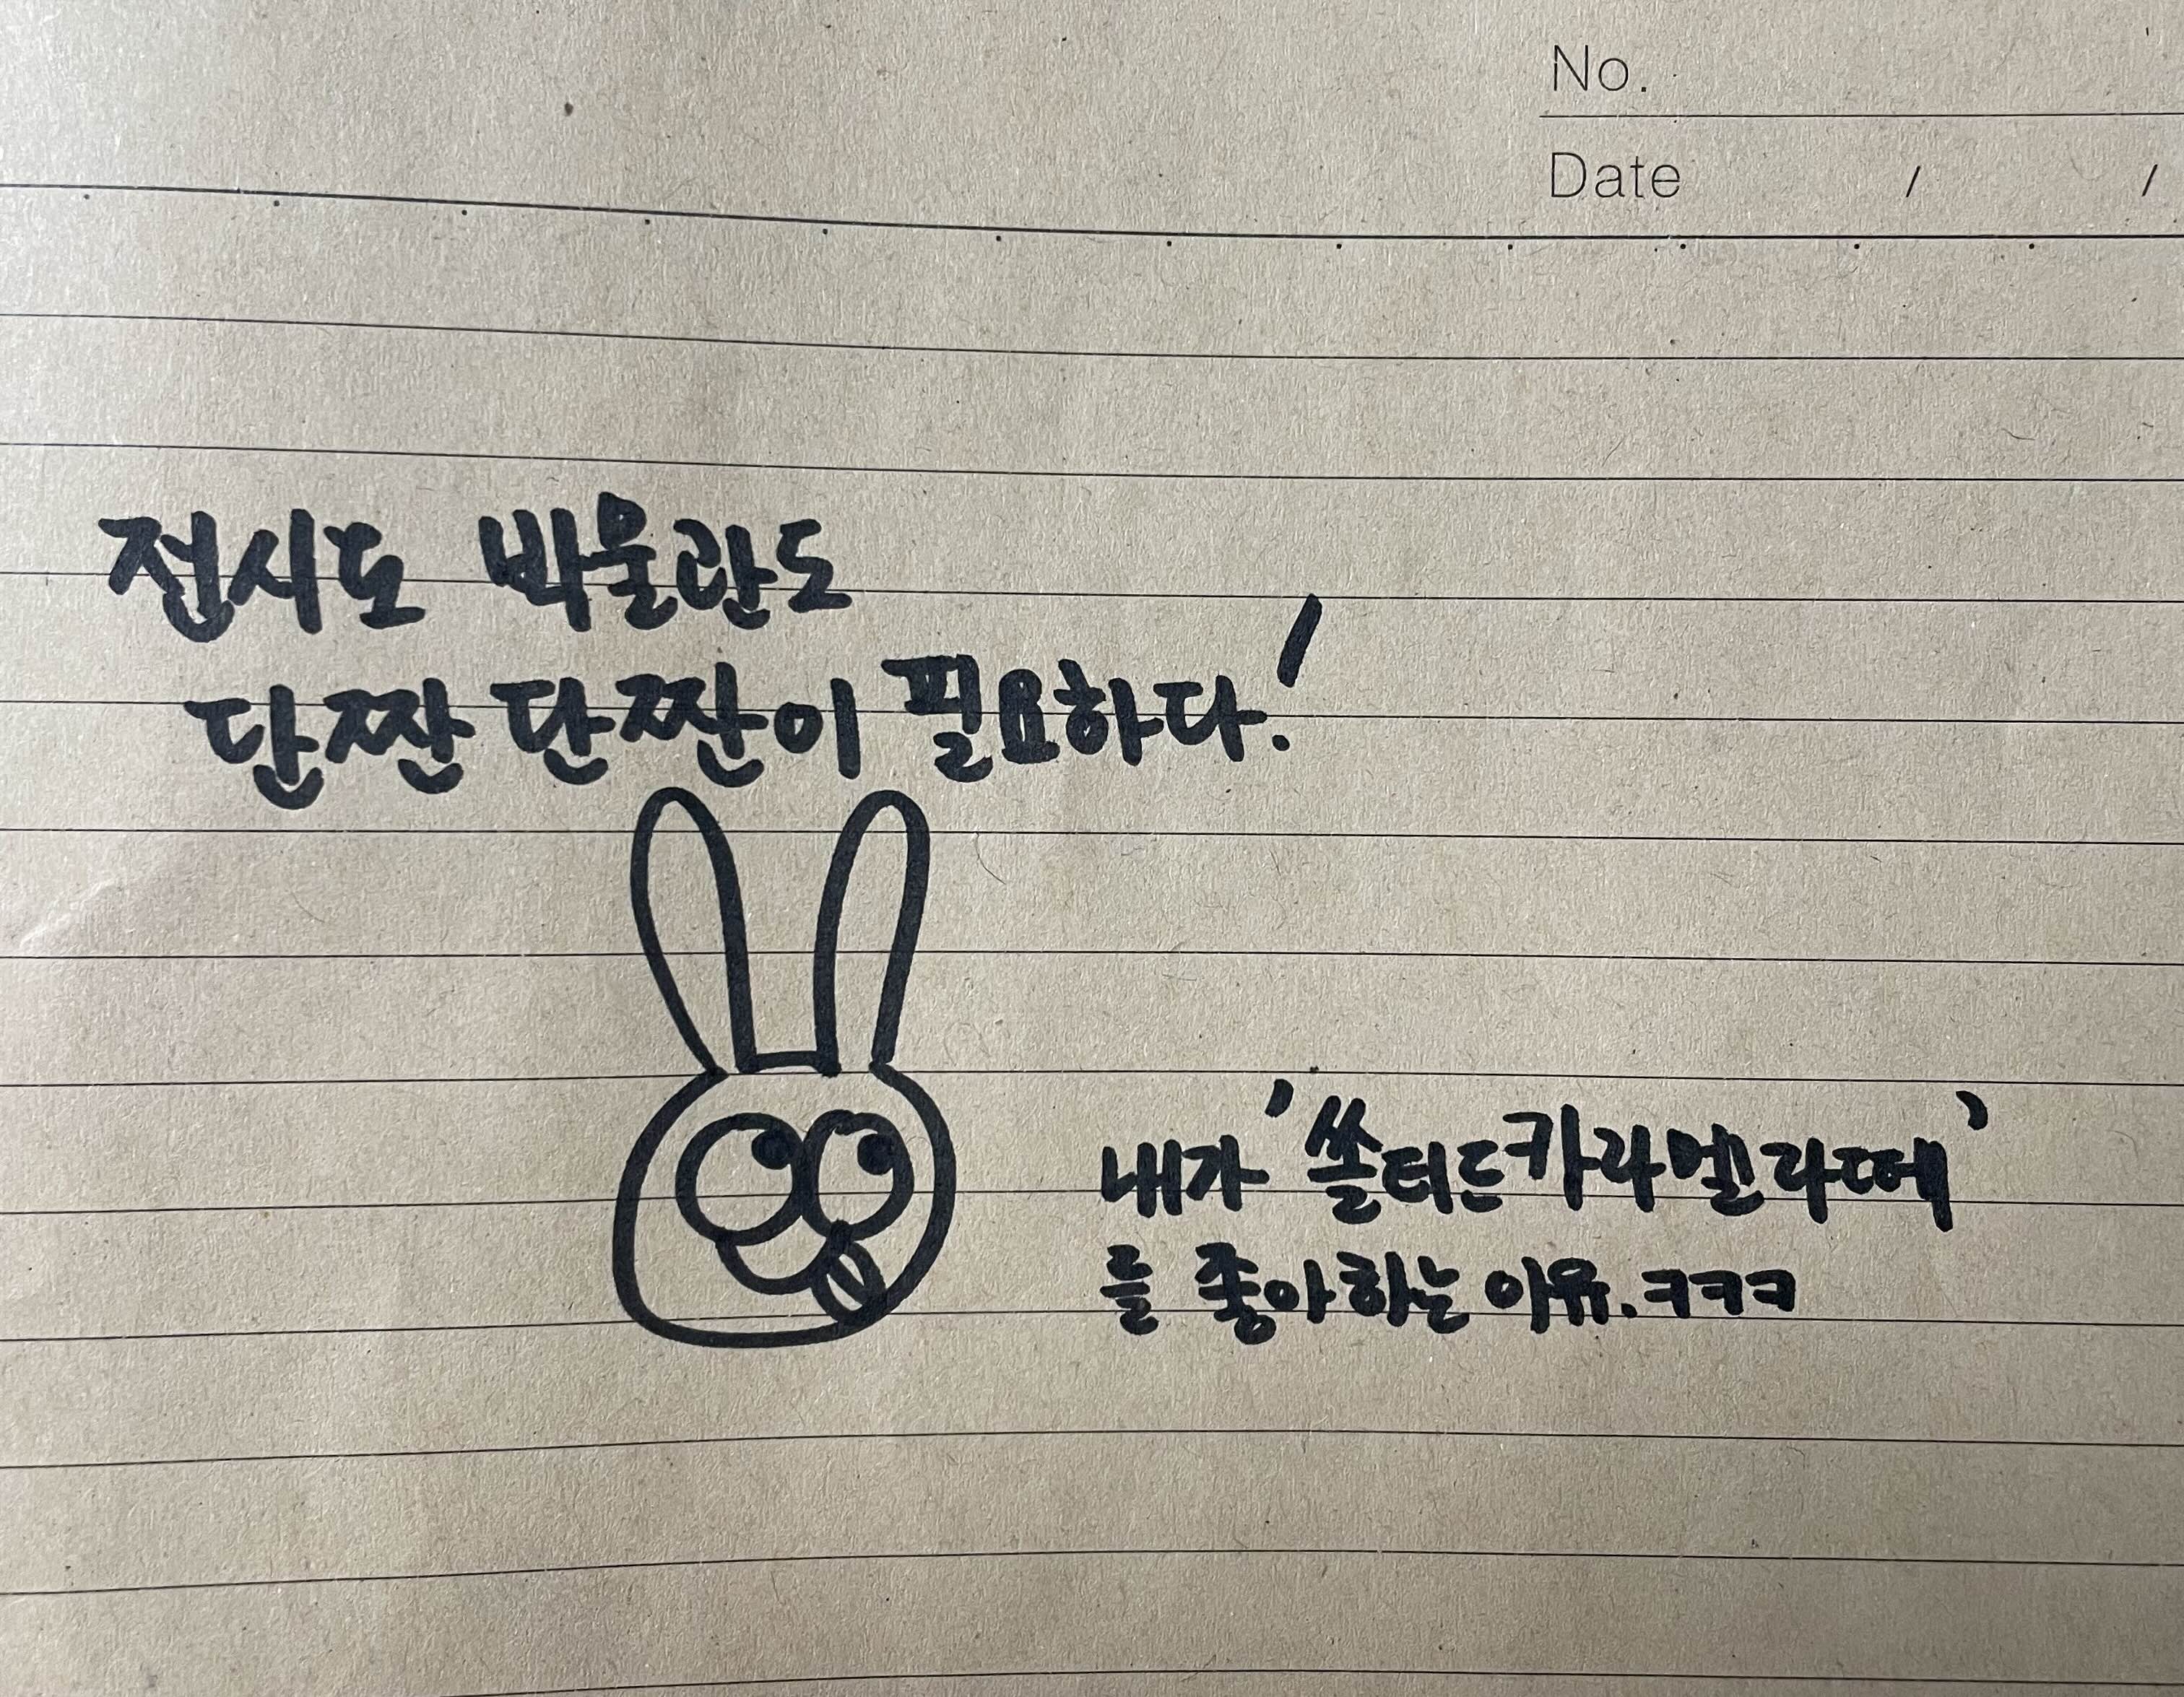 No.
Date / /
전시도 박물관도
단짠단짠이 필요하다!
내가 '쏠터드카라멜라떼'
를 좋아하는 이유.ㅋㅋㅋ